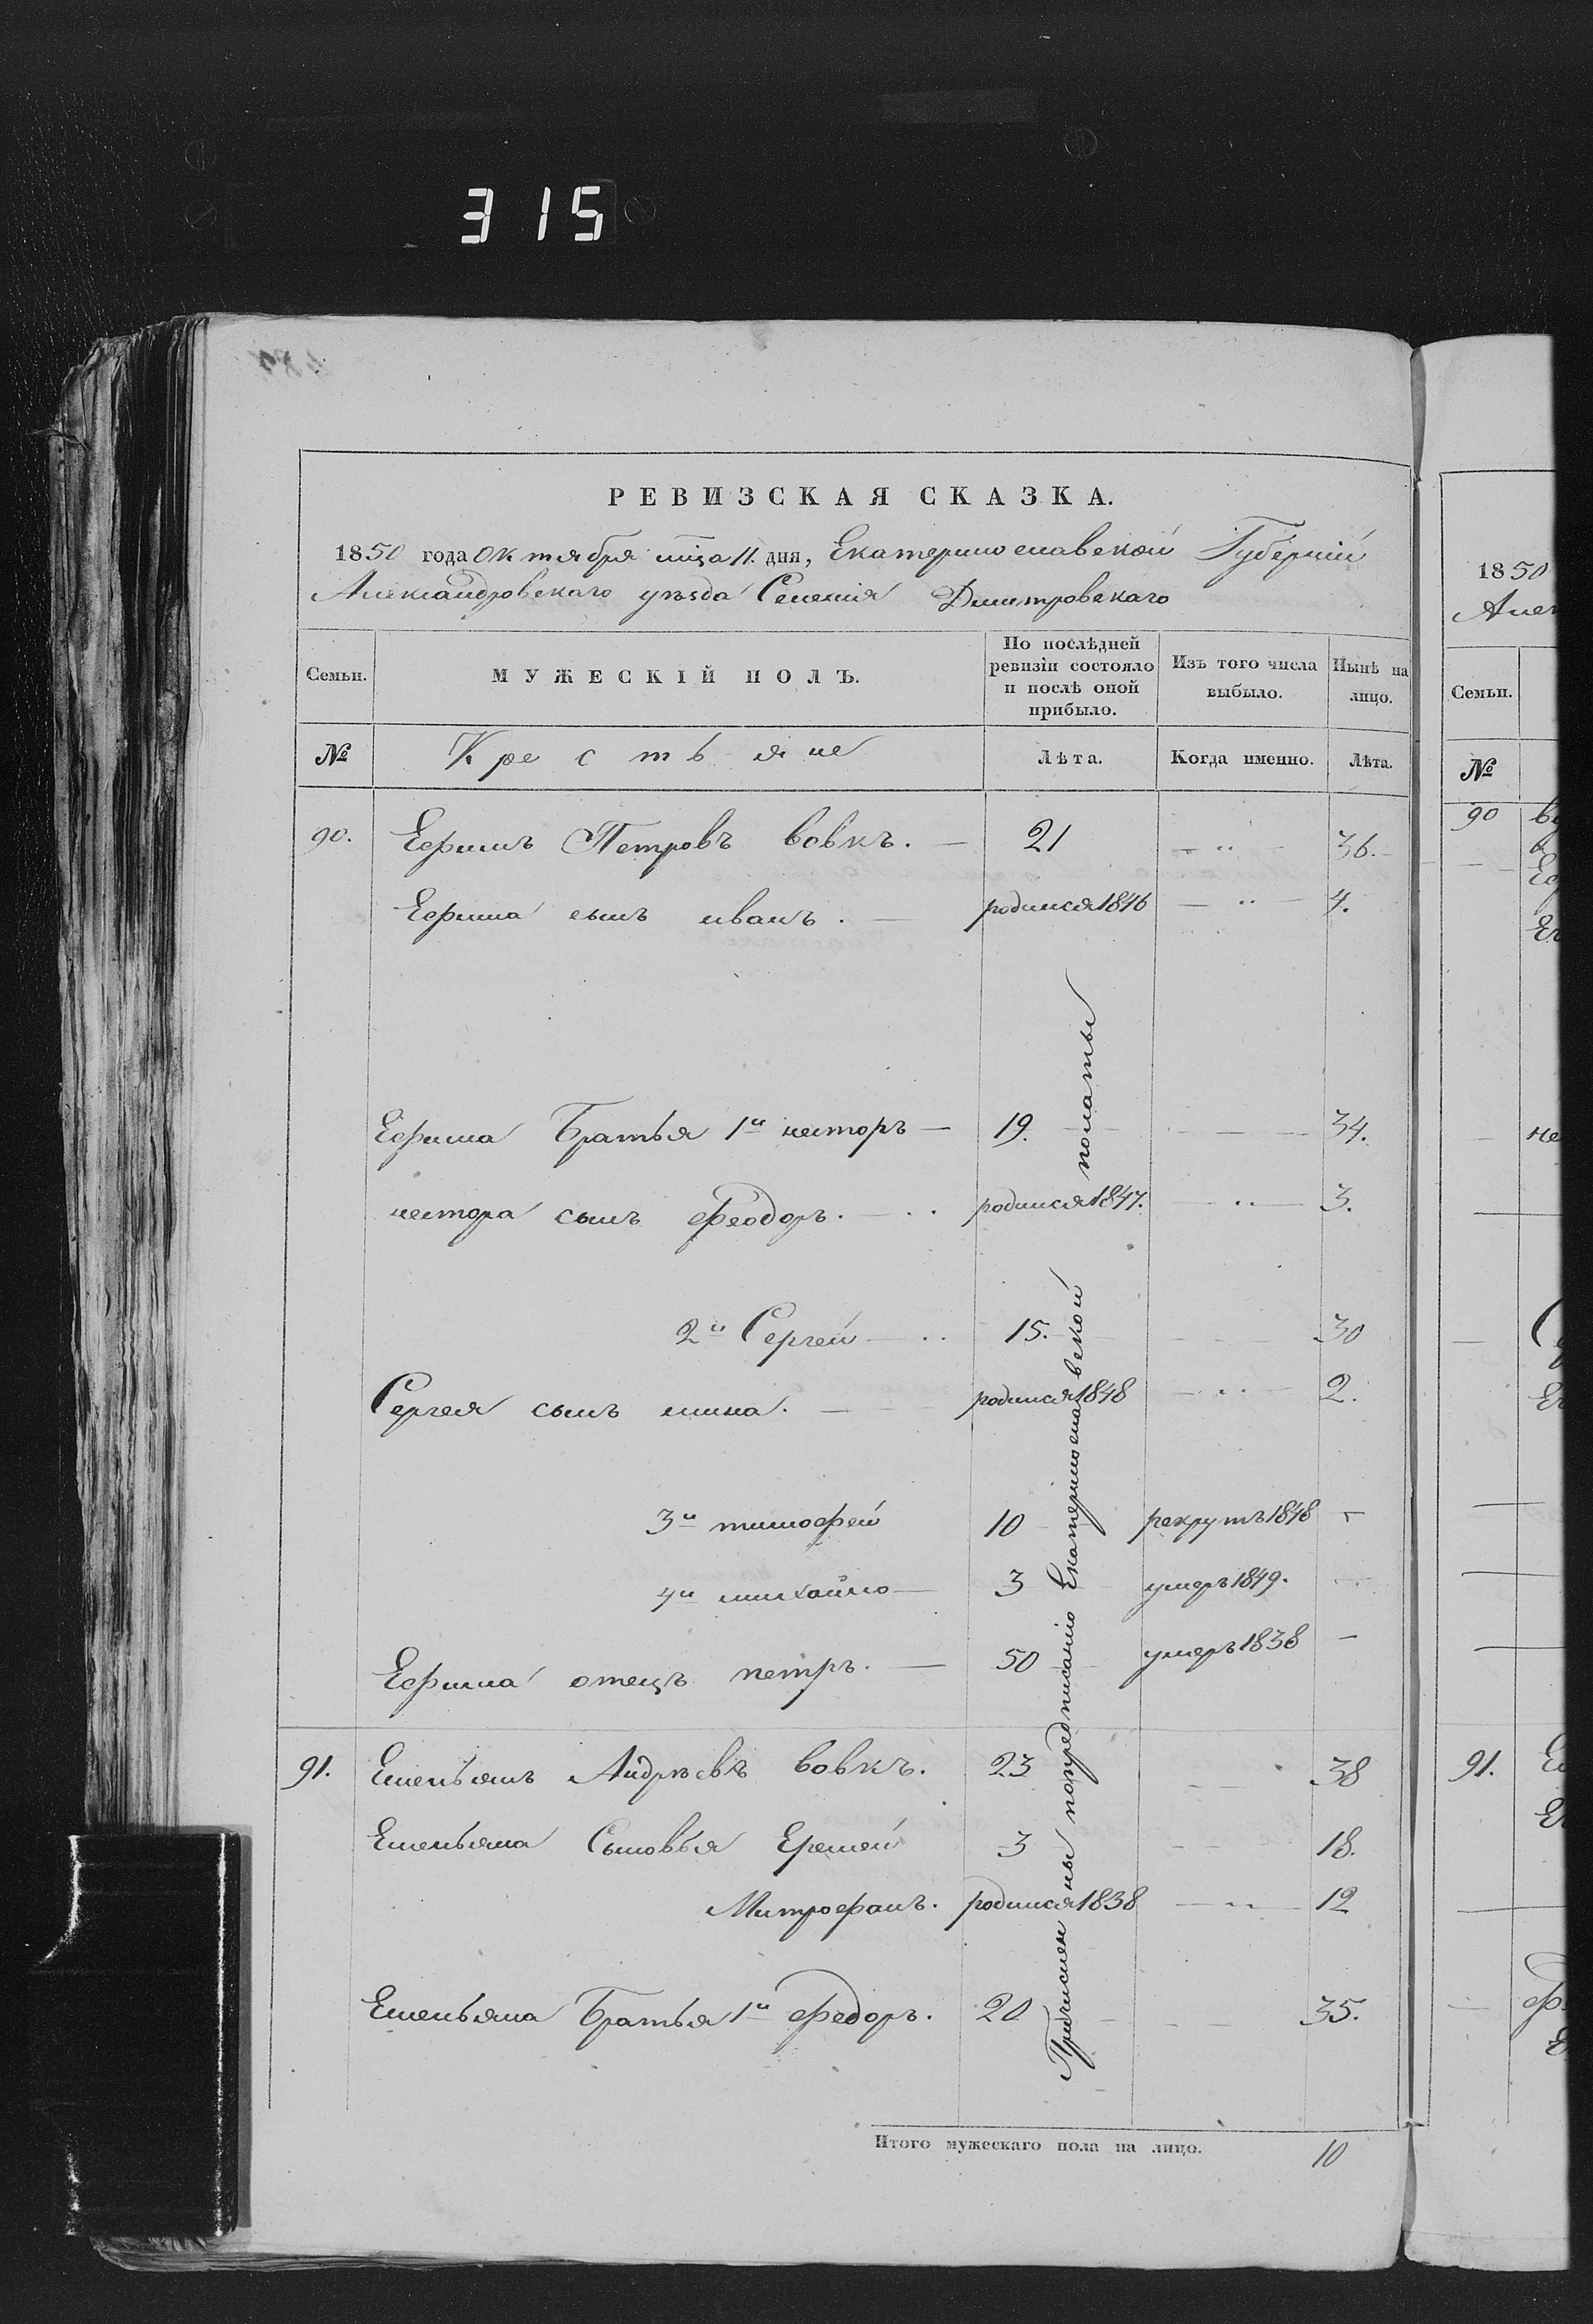 315
РЕВИЗСКАЯ СКАЗКА.
1850 года октября мца 11. дня, Екатеринославской Губерніи
Александровскаго уѣзда Селенія Дмитровскаго
Семьи. МУЖЕСКІЙ ПОЛЪ. По послѣдней ревизіи состояло и послѣ оной прибыло. Изъ того числа выбыло. Нынѣ на лицо.
№ Крестьяне Лѣта. Когда именно. Лѣта.
90. Ефимъ Петровъ вовкъ. 21 36.
Ефима сынъ иванъ. родился 1846 4.
Ефима Братья 1й несторъ 19. 34.
нестора сынъ феодоръ. родился 1847. 3.
2й Сергей 15. 30
Сергея сынъ мина. родился 1848 2.
3й тимофей 10 рекрутъ 1848
4й михайло 3 умеръ 1849.
Ефима отецъ петръ. 50 умеръ 1838
91. Емельянъ Андрѣевъ вовкъ. 23 38
Емельяна Сыновья Еремей 3 18.
Митрофанъ. родился 1838 12
Емельяна Братья 1й федоръ. 20 35.
Причислены попредписанію Екатеринославской полаты
Итого мужескаго пола на лицо. 10
1850
Семьи.
№
90
91.